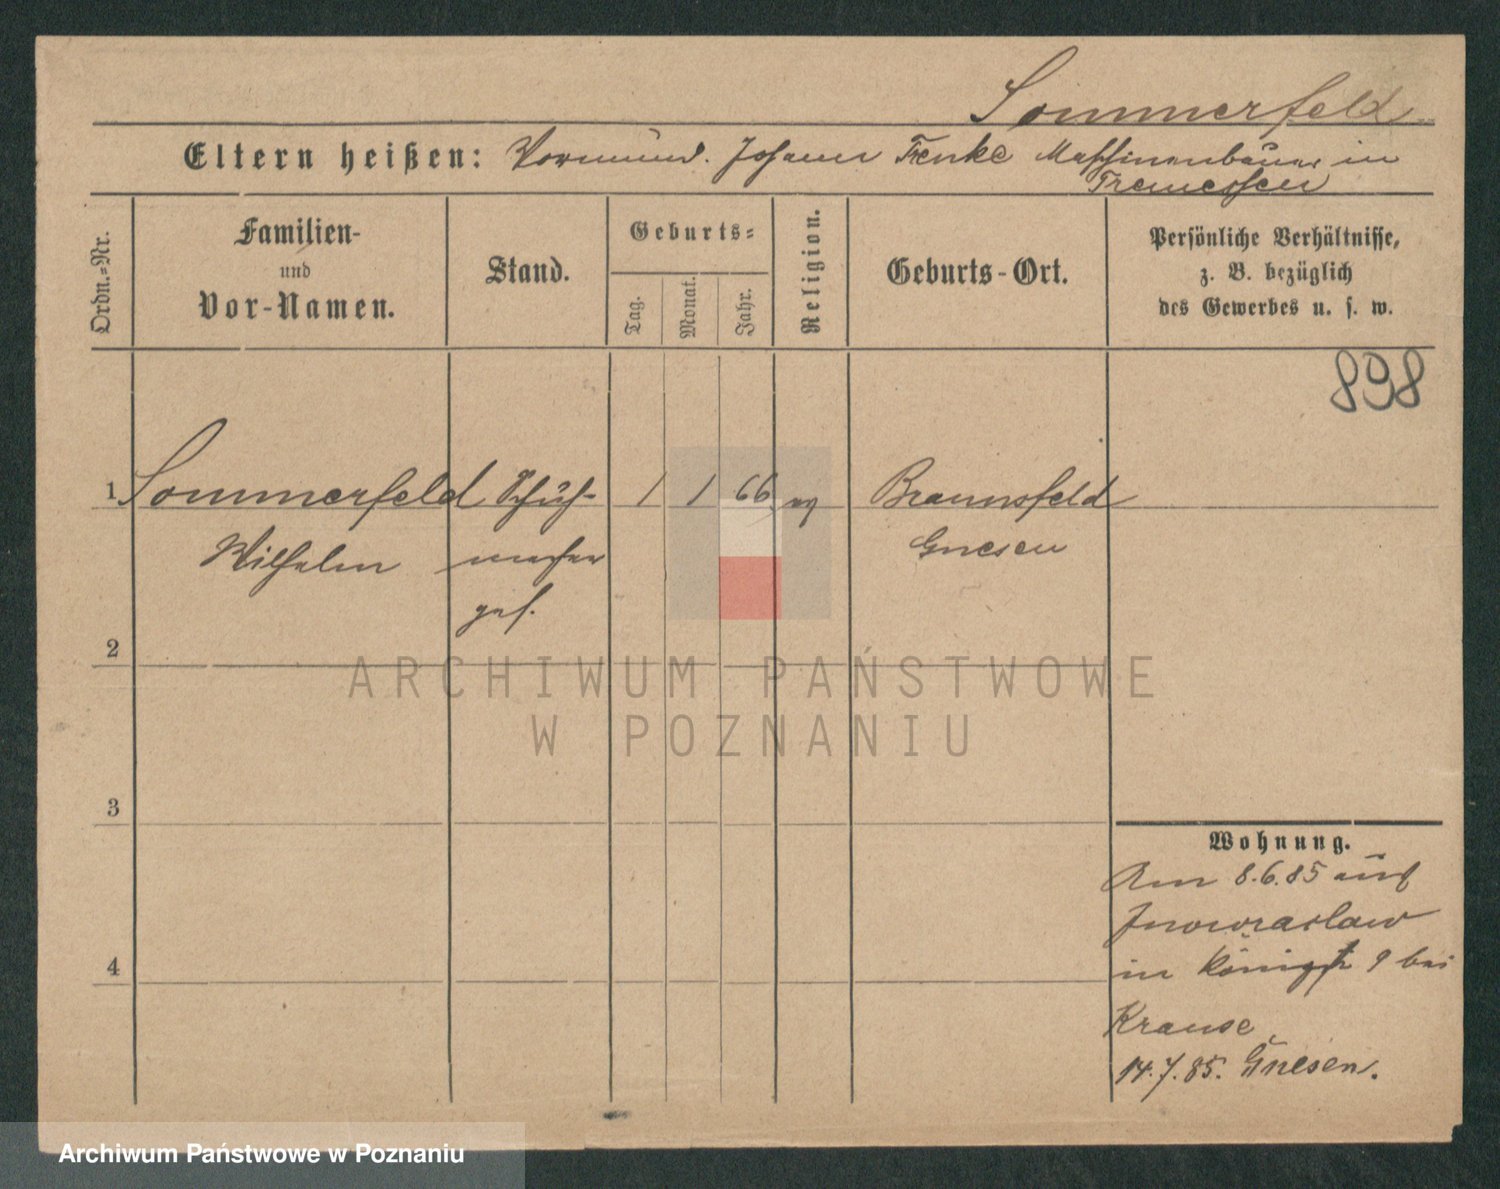 Sommerfeld
Eltern heißen: Vormund. Johann Fenke Maschinenbauer in
Tremessen
Ordn.=Nr.
Familien-
und
Vor-Namen.
Stand.
Geburts=
Tag.
Monat.
Jahr.
Religion.
Geburts-Ort.
Persönliche Verhältnisse,
z. B. bezüglich
des Gewerbes u. s. w.
898
1 Sommerfeld Schuh- 1 1 66 Braunsfeld
Wilhelm macher Gnesen
ges.
2
3
4
Wohnung.
Am 8.6.85 aus
Inowraclaw
in Königstr 9 bei
Krause
14.7.85. Gnesen.
ARCHIWUM PAŃSTWOWE
W POZNANIU
Archiwum Państwowe w Poznaniu